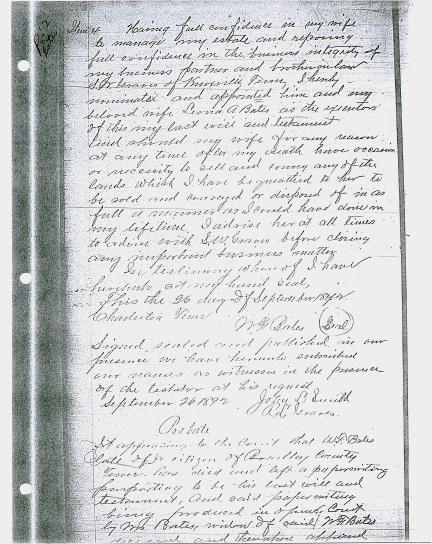 Item 4 Having full confidence in my wife
to manage my estate and reposing
full confidence in the business integrity of
my business partner and brother in law
S.W. Graves of Knoxville Tenn, I hereby
nominate and appointed him and my
beloved wife Leona A Bates as the executors
of this my last will and testament
And should my wife for any reason
at any time after my death have occasion
or necessity to sell and convey any of the
lands which I have bequeathed to her to
be sold and conveyed or disposed of in as
full a manner as I could have done in
my lifetime, I advise her at all times
to advise with S.W. Graves before closing
any important business matter
In testimony where of I have
hereunto set my hand seal,
this the 26 day of September 1892
Charleston Tenn
W F Bates (Seal)
Signed sealed and published in our
presence we have hereunto subscribed
our names as witnesses in the presence
of the testator at his request
September 26 1892
John L Smith
Graves.
Probate
It appearing to the Court that W.F. Bates
late of a citizen of Bradley County
Tenn. has died and left a paperwriting
purporting to be his last will and
testament, and said paperwriting
being produced in open Court
by Mrs Bates, widow of said W F Bates
deceased and thereupon appeared